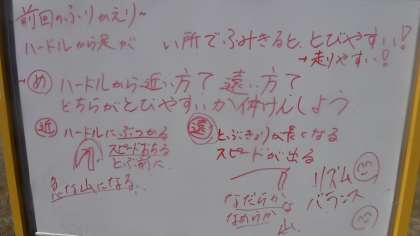 前回のふりかえり～
ハードルから足が　　い所でふみきると、とびやすい!
→走りやすい!
め ハードルから近い方? 遠い方?
どちらがとびやすいか体けんしよう
近 ハードルにぶつかる
スピードおちる
とぶ前に
急な山になる。
遠 とぶきょりが長くなる
スピードが出る
なだらかな
なめらか
山
リズム
バランス